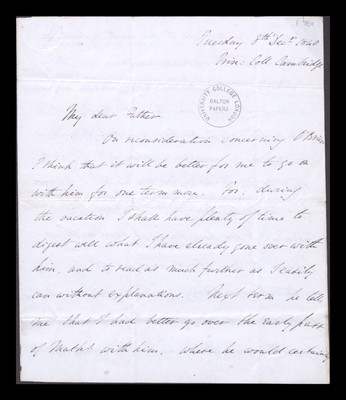 Tuesday 8th Decr. 1840
Trin: Coll Cambridge
UNIVERSITY COLLEGE LONDON
GALTON
PAPERS
My dear Father
On reconsideration concerning O'Brien
I think that it will be better for me to go on
with him for one term more. For, during
the vacation I shall have plenty of time to
digest well what I have already gone over with
him, and to read as much further as I easily
can without explanations. Next term he tells
me that I had better go over the early part
of Mathcs with him, where he would certainly